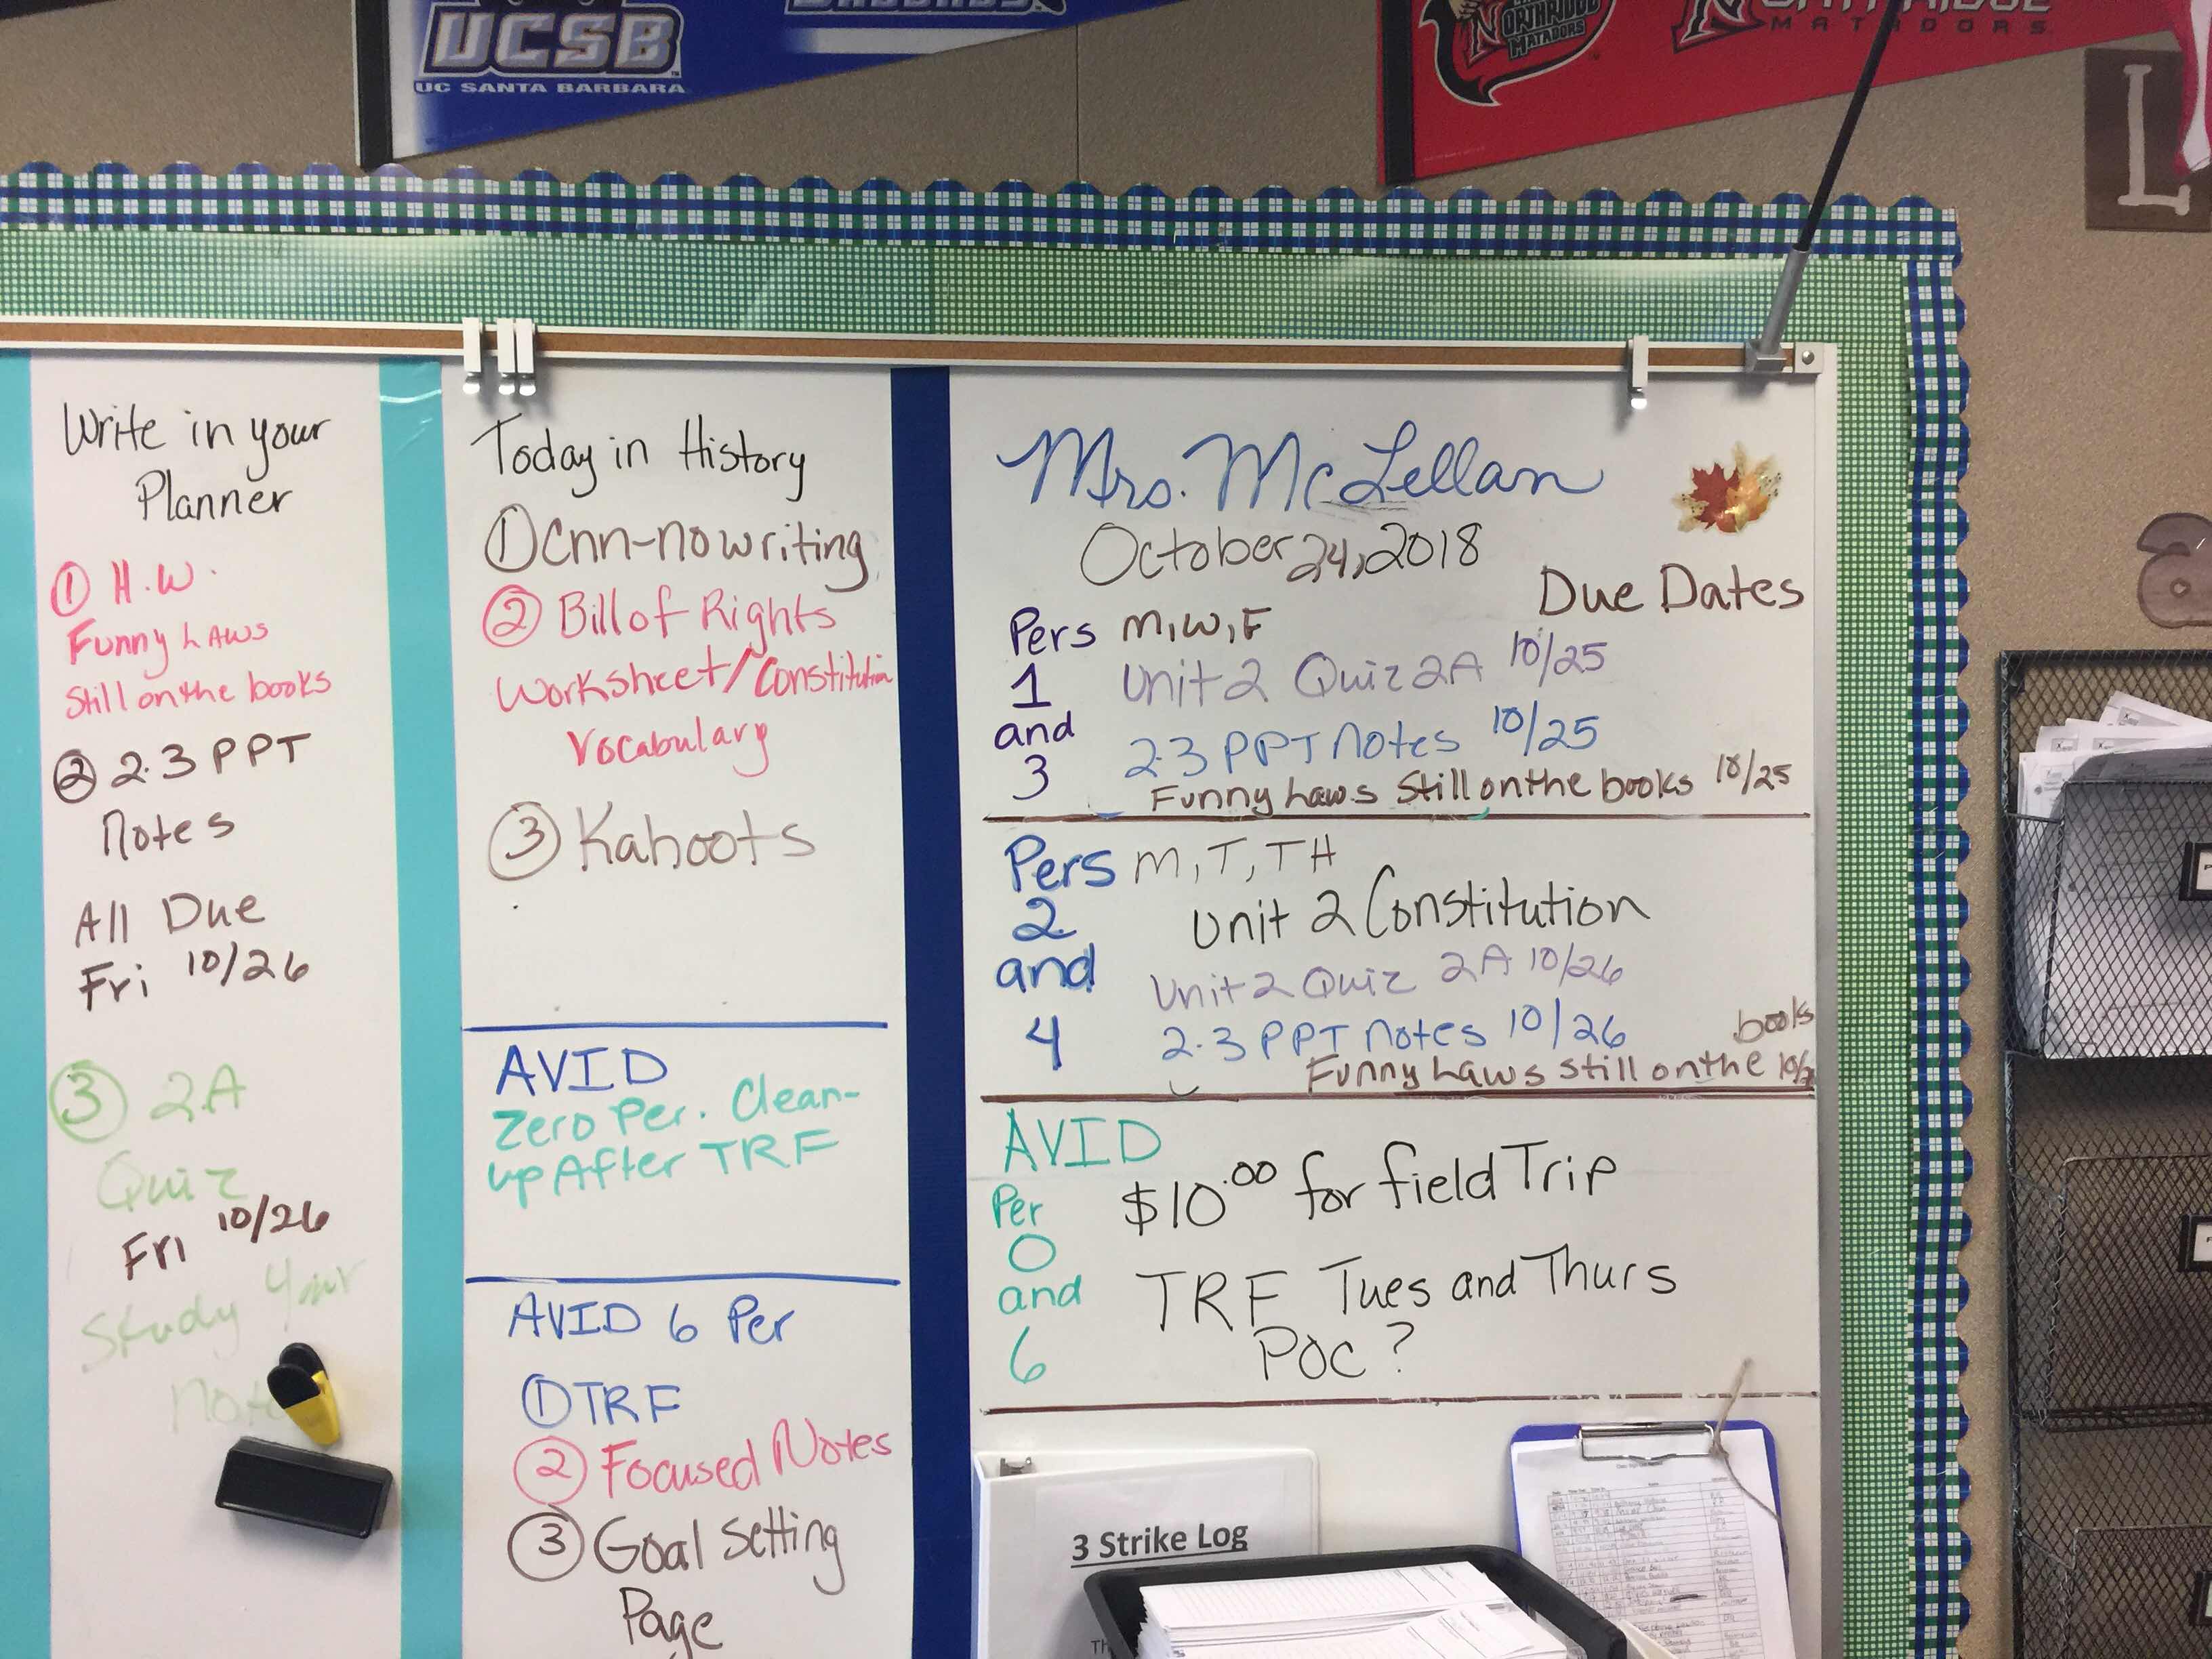 UCSB
UC SANTA BARBARA
NORTHRIDGE
MATADORS
MATADORS
L
a
Write in your
Planner
① H.W.
Funny Laws
Still on the books
② 2.3 PPT
Notes
All Due
Fri 10/26
③ 2A
Quiz
Fri 10/26
Study your
Today in History
① Cnn-no writing
② Bill of Rights
Worksheet/Constitution
Vocabulary
③ Kahoots
AVID
Zero Per. Clean-
up After TRF
AVID 6 Per
① TRF
② Focused Notes
③ Goal Setting
Page
Mrs. McLellan
October 24, 2018
Due Dates
Pers M, W, F
1 Unit 2 Quiz 2A 10/25
and
3 2.3 PPT Notes 10/25
Funny Laws Still on the books 10/25
Pers M, T, TH
2 Unit 2 Constitution
and Unit 2 Quiz 2A 10/26
4 2.3 PPT Notes 10/26
books
Funny Laws still on the
AVID
Per $10.00 for field Trip
0
and TRF Tues and Thurs
6 POC?
3 Strike Log